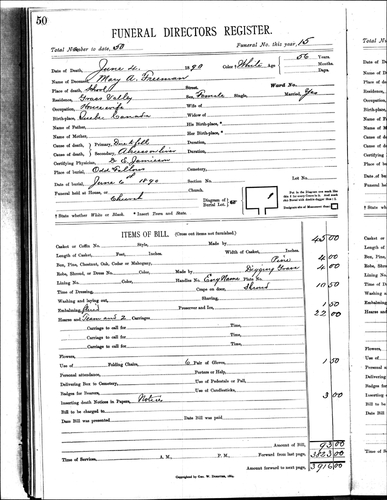 50
FUNERAL DIRECTORS REGISTER.
Total No. to date, 50 Funeral No. this year, 15
Date of Death, June 4. 1890 Color † White Age 56 Years. Months. Days.
Name of Deceased, Mary A. Freeman
Place of Death, Street. Ward No.
Residence, Grass Valley Sex, Female Single, Married, Yes
Occupation, Housewife Wife of
Birth-place, Quebec Canada Widow of
Name of Father, His Birth-place,*
Name of Mother, Her Birth-place,*
Cause of Death, Primary, Duration,
Cause of Death, Secondary, Duration,
Certifying Physician, Jamieson
Place of burial, Odd Fellows Cemetery,
Date of burial, June 6th 1890 Section No. Lot No.
Funeral held at House, or Church.
Church
Diagram of Burial Lot.
† State whether White or Black. * Insert Town and State.
ITEMS OF BILL. (Cross out items not furnished.)
Casket or Coffin No. Style, Made by 45 00
Length of Casket, Feet, Inches. Width of Casket, Inches.
Box, Pine, Chestnut, Oak, Cedar or Mahogany, Pine 4 00
Robe, Shroud, or Dress No. Color, Made by Digging Grave 4 00
Lining No. Color, Handles No. Eng Name Plate No.
Time of Dressing, Crape on door, Shroud 10 50
Washing and laying out, Shaving,
Embalming, Preserver and Ice, 1 50
Hearse and Team and 2 Carriages 22 00
Carriages to call for Time,
Carriages to call for Time,
Carriages to call for Time,
Carriages to call for Time,
Flowers,
Use of Folding Chairs, 6 Pair of Gloves, 1 50
Personal attendance, Porters or Help,
Delivering Box to Cemetery, Use of Pedestals or Pall,
Badges for Bearers, Use of Candlesticks,
Inserting death Notices in Papers, Notices 3 00
Bill to be charged to
Date Bill was presented Date Bill was paid.
Amount of Bill,
Time of Services, A.M., P.M. Forward from last page,
Amount forward to next page, 3916 00